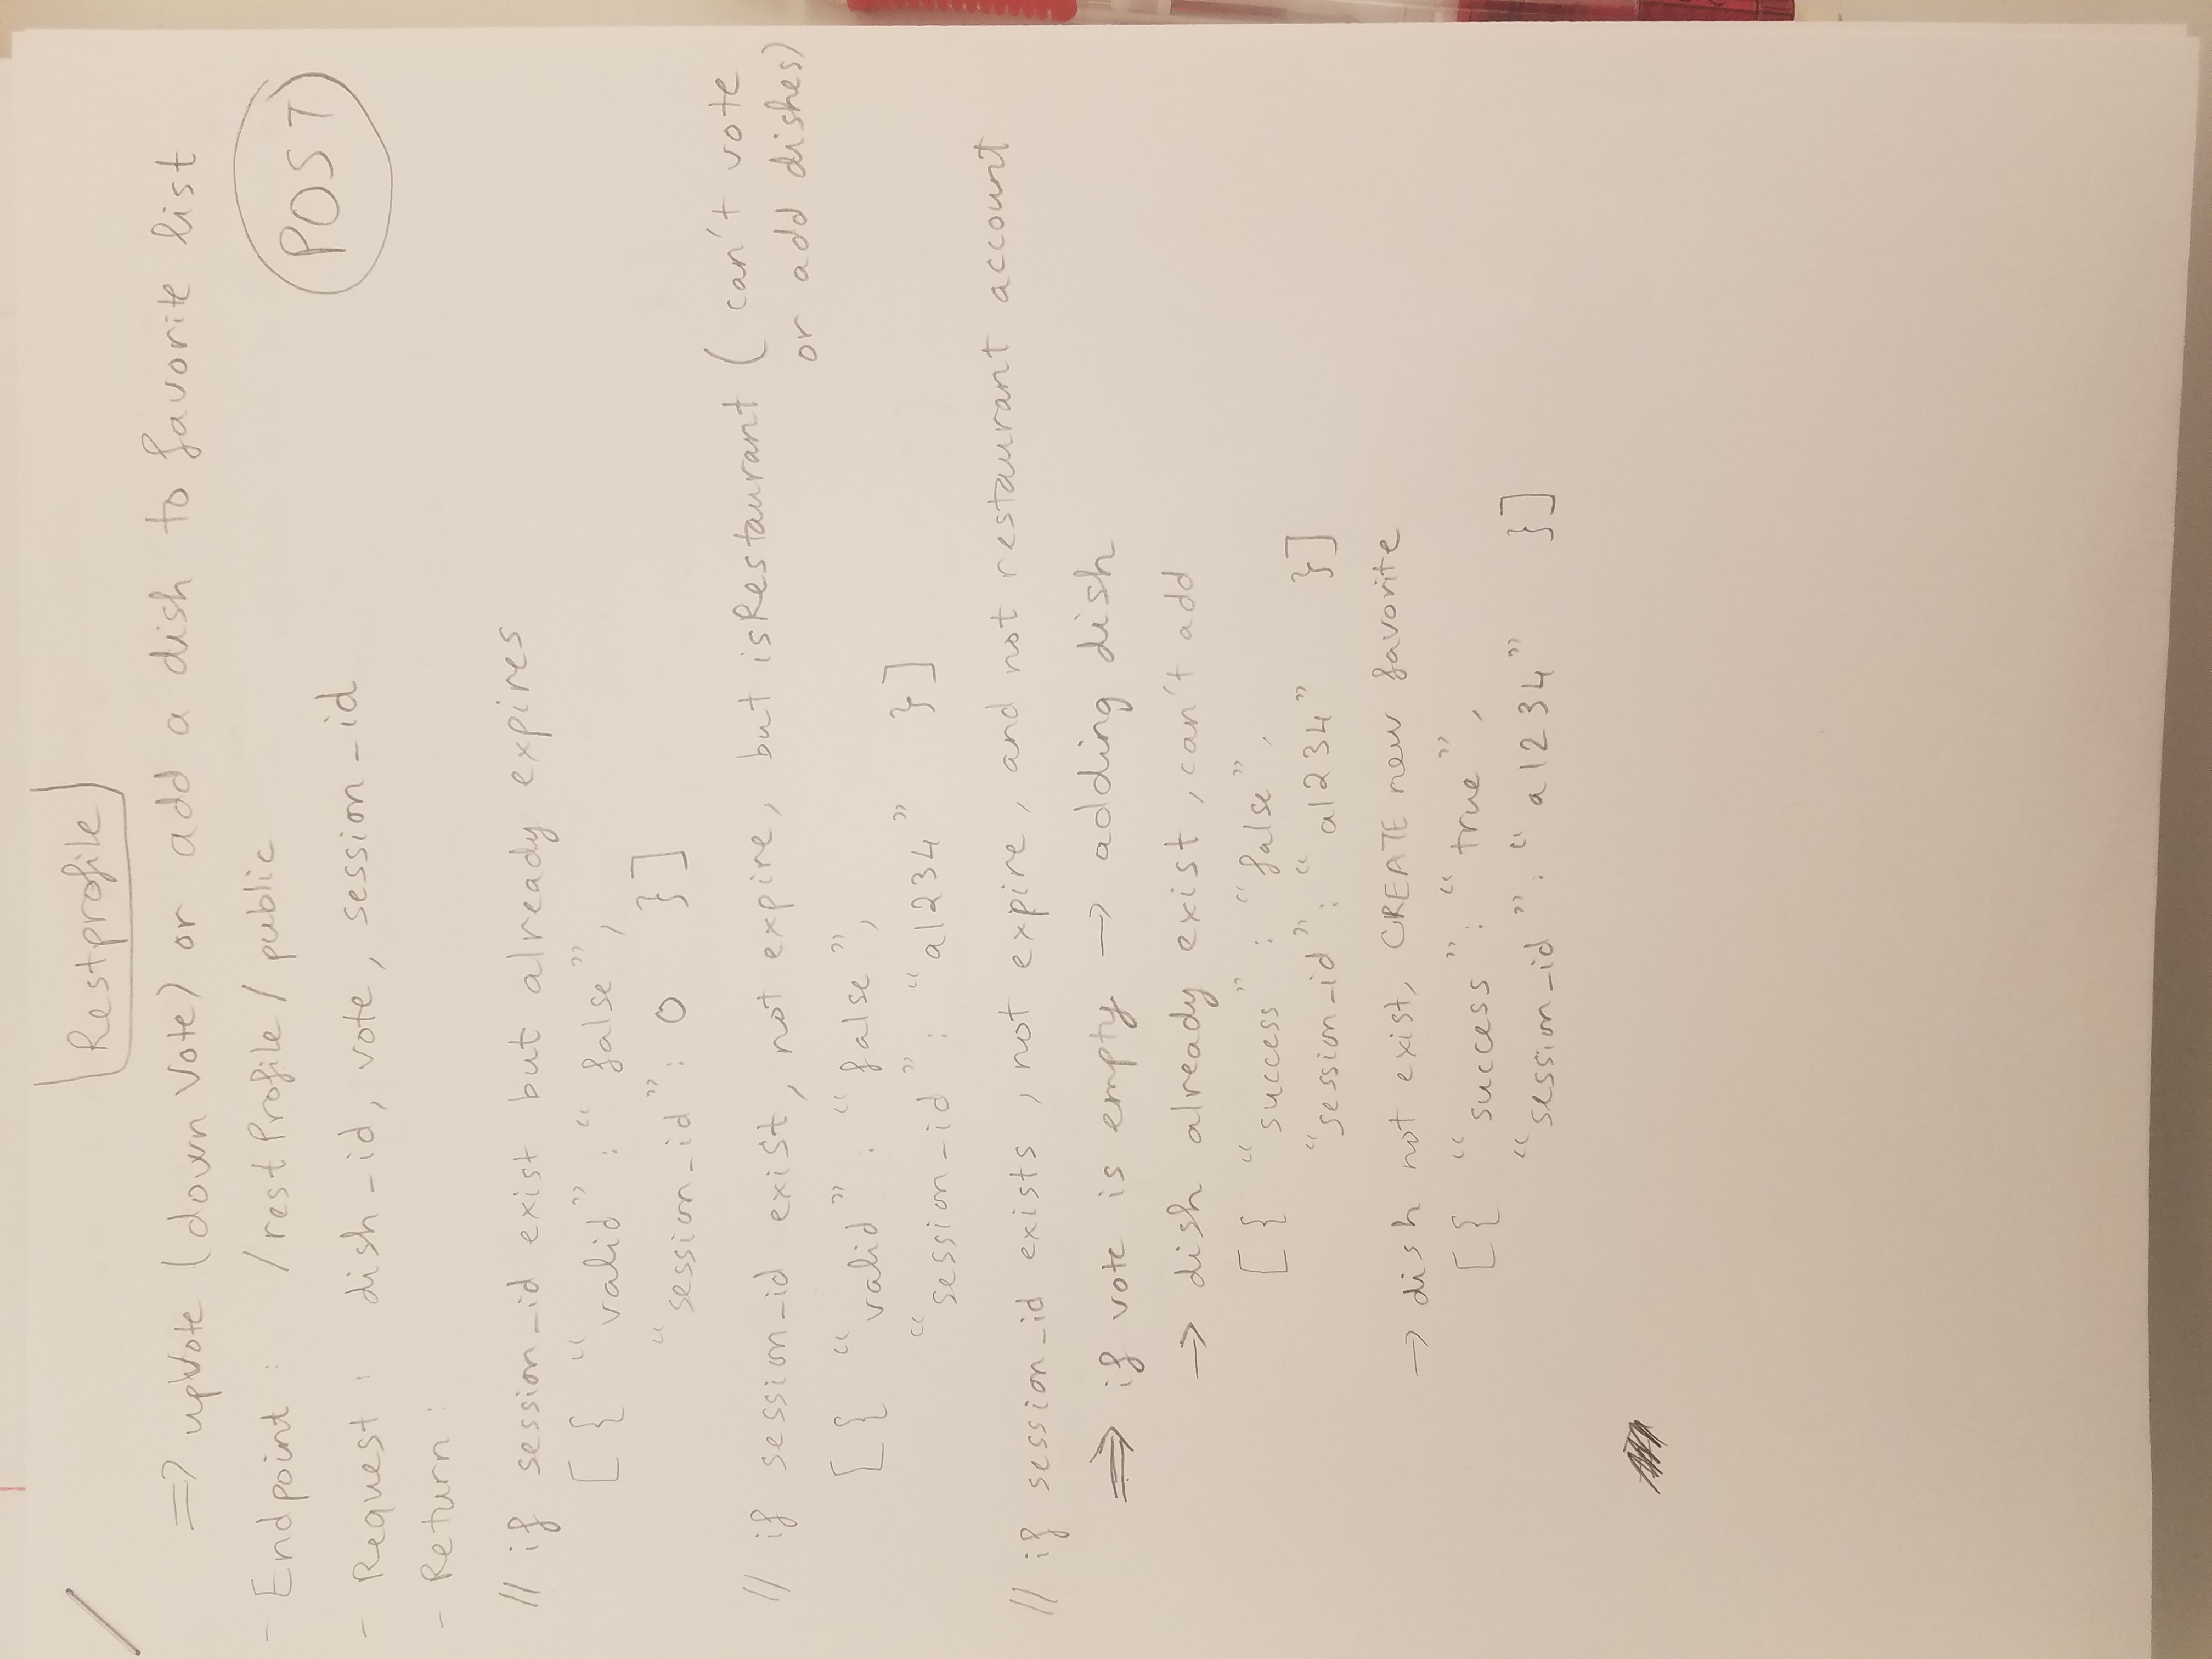 Restprofile
=> upVote (down Vote) or add a dish to favorite list
- Endpoint : /restProfile/public
POST
- Request : dish_id, vote, session_id
- Return :
// if session_id exist but already expires
[{ "valid" : "false",
"session_id" : 0 }]
// if session_id exist, not expire, but isRestaurant ( can't vote
or add dishes)
[{ "valid" : "false",
"session_id" : "a1234" }]
// if session_id exists, not expire, and not restaurant account
=> if vote is empty -> adding dish
-> dish already exist, can't add
[{ "success" : "false",
"session_id" : "a1234" }]
-> dish not exist, CREATE new favorite
[{ "success" : "true",
"session_id" : "a1234" }]